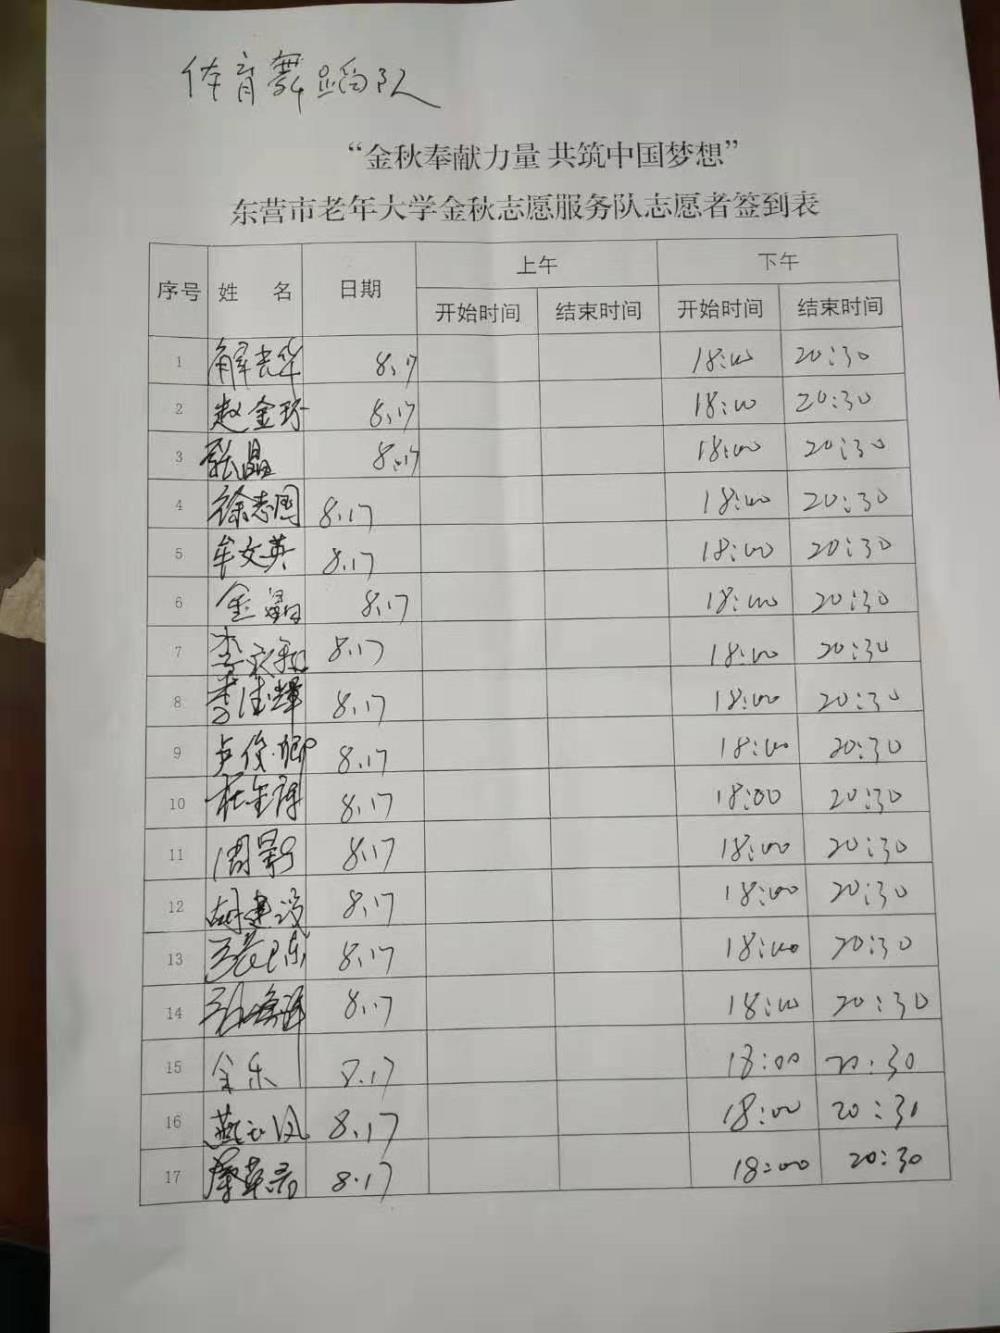 体育舞蹈队
“金秋奉献力量 共筑中国梦想”
东营市老年大学金秋志愿服务队志愿者签到表
序号 姓 名 日期 上午 下午
开始时间 结束时间 开始时间 结束时间
1 解 华 8.17 18:00 20:30
2 赵金玲 8.17 18:00 20:30
3 张晶 8.17 18:00 20:30
4 徐志国 8.17 18:00 20:30
5 牟文英 8.17 18:00 20:30
6 金 8.17 18:00 20:30
7 李 8.17 18:00 20:30
8 李 辉 8.17 18:00 20:30
9 卢俊卿 8.17 18:00 20:30
10 杜金 8.17 18:00 20:30
11 周影 8.17 18:00 20:30
12 胡建设 8.17 18:00 20:30
13 8.17 18:00 20:30
14 8.17 18:00 20:30
15 金乐 8.17 18:00 20:30
16 燕 8.17 18:00 20:30
17 8.17 18:00 20:30